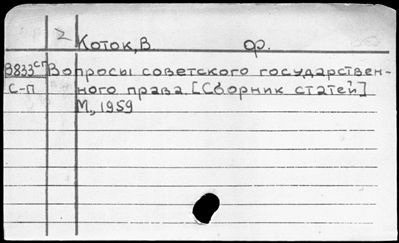 Z Коток, В. ф.
В833сп Вопросы советского государствен-
С-П ного права. [Сборник статей]
М., 1959